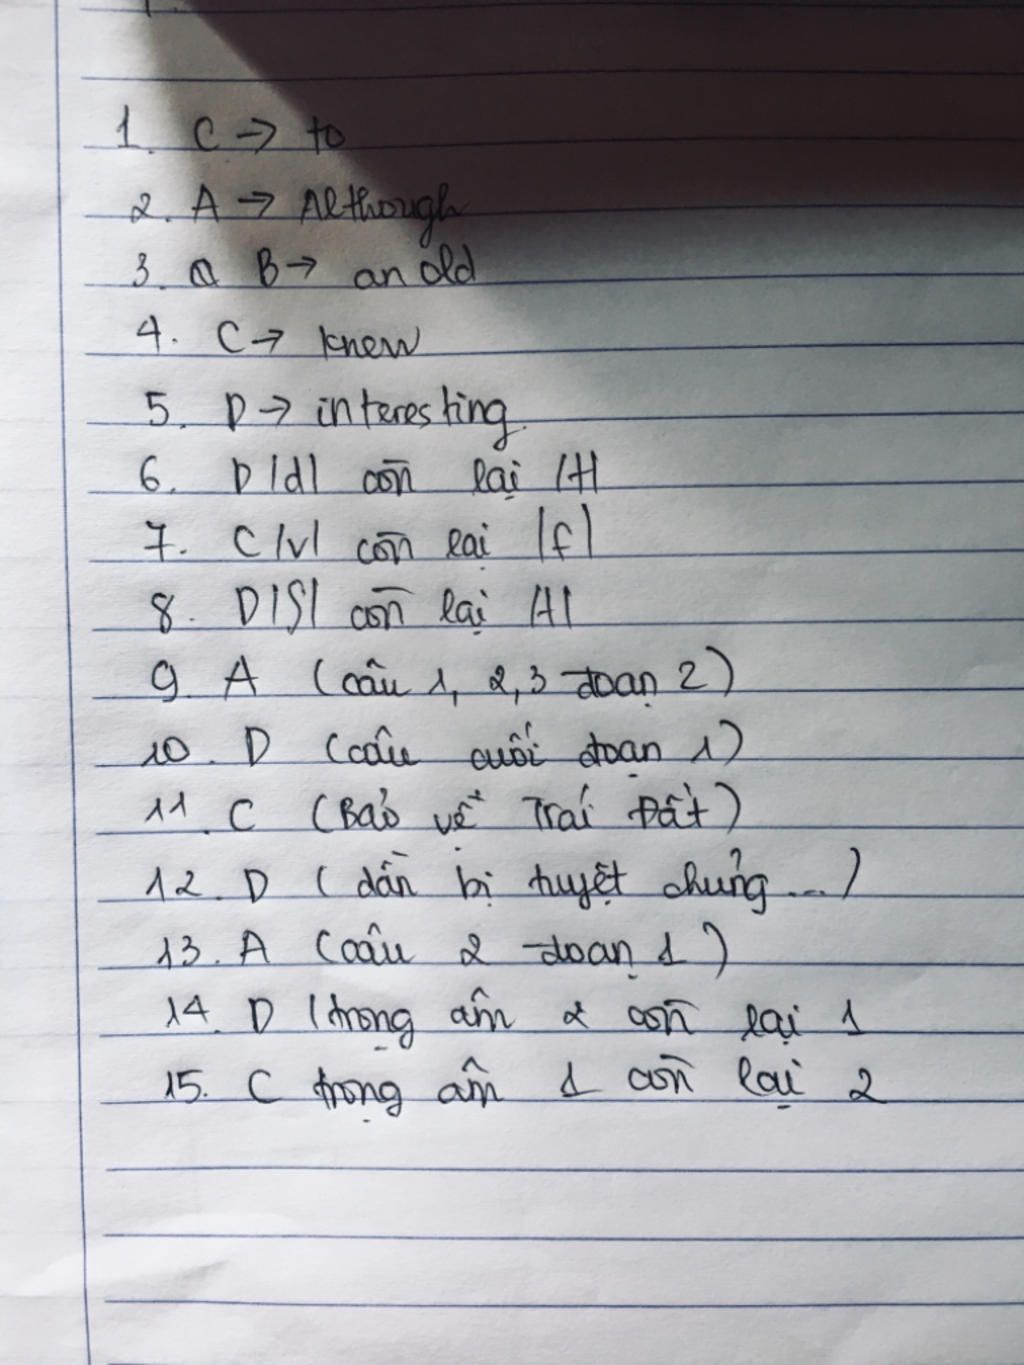 1. C → to
2. A → Although
3. B → an old
4. C → knew
5. D → interesting.
6. D /d/ còn lại /t/
7. C /v/ còn lại /f/
8. D /ʃ/ còn lại /t/
9. A (câu 1, 2, 3 đoạn 2)
10. D (câu cuối đoạn 1)
11. C (Bảo vệ Trái Đất)
12. D (dần bị tuyệt chủng ...)
13. A (câu 2 đoạn 1)
14. D (trọng âm 2 còn lại 1
15. C trọng âm 1 còn lại 2